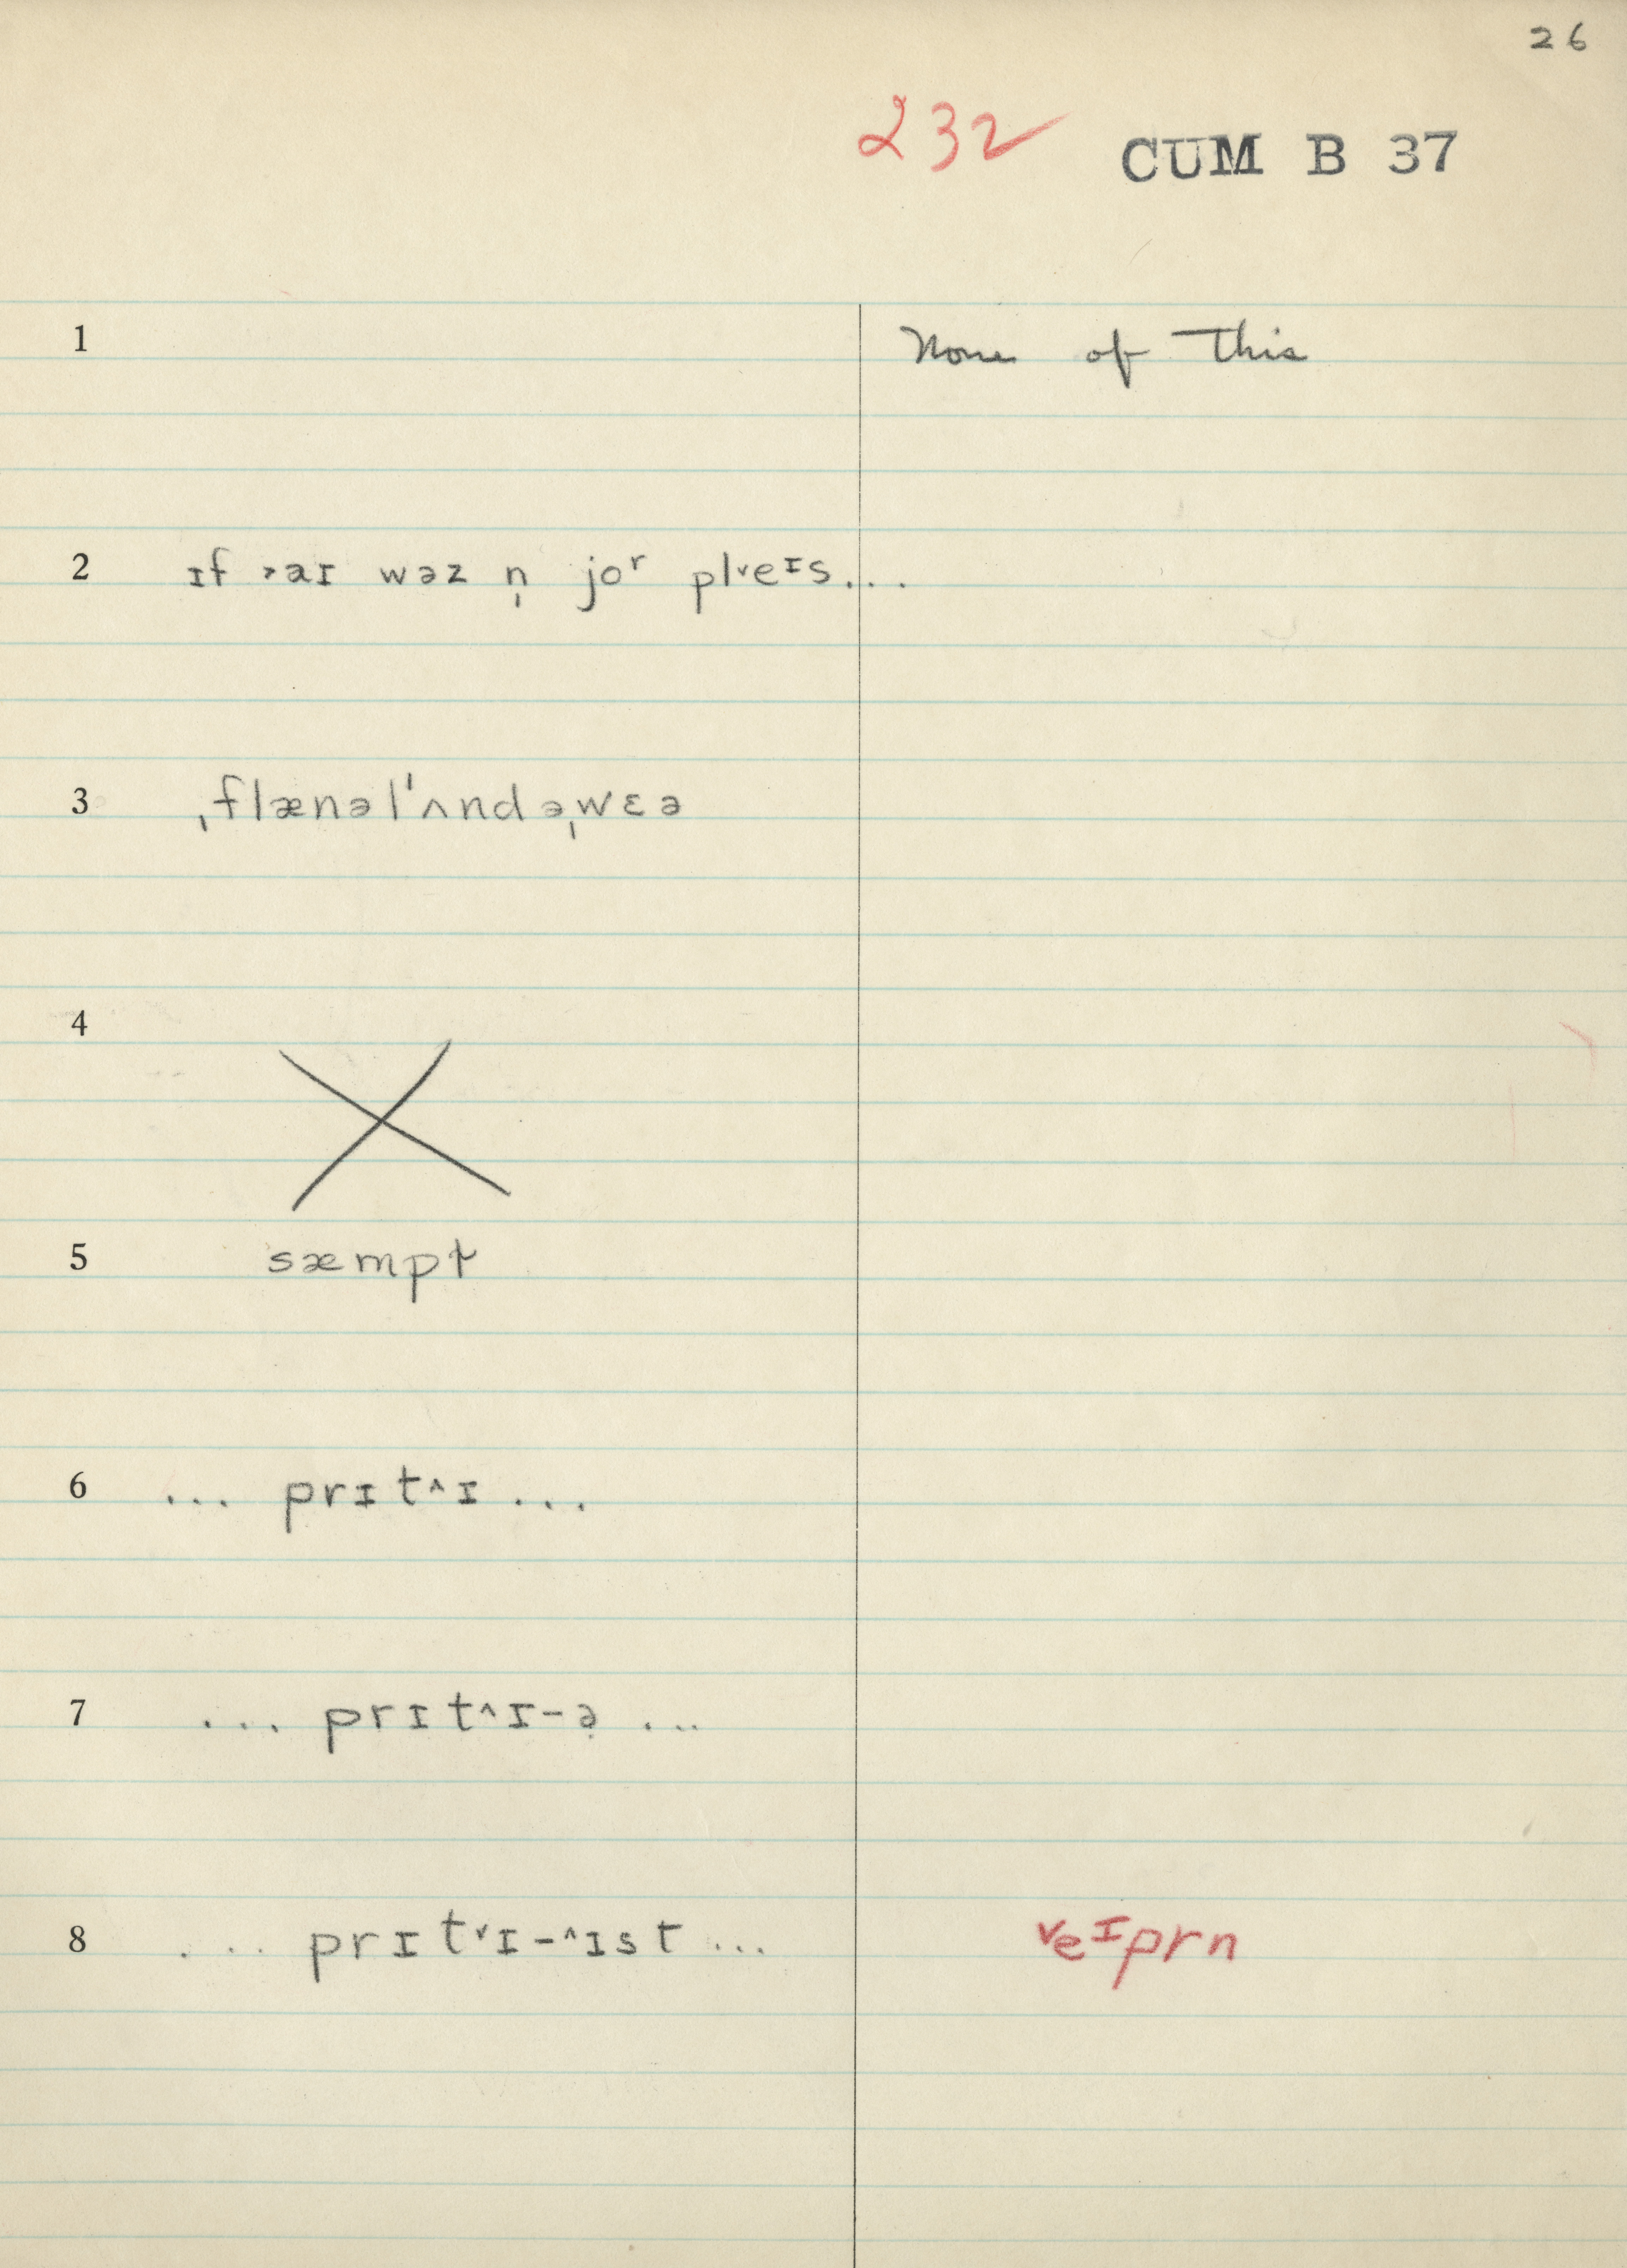 26
232 CUM B 37
1 None of this
2 ɪf ˃aɪ wəz n̩ joʳ pl˅eᶦs...
3 ˌflænəlˈʌndəˌwɛə
4
5 sæmpt
6 ... prɪt˄ɪ ...
7 ... prɪt˄ɪ-ə̣ ...
8 ... prɪt˅ɪ-˄ɪst ... ˅eᶦprn